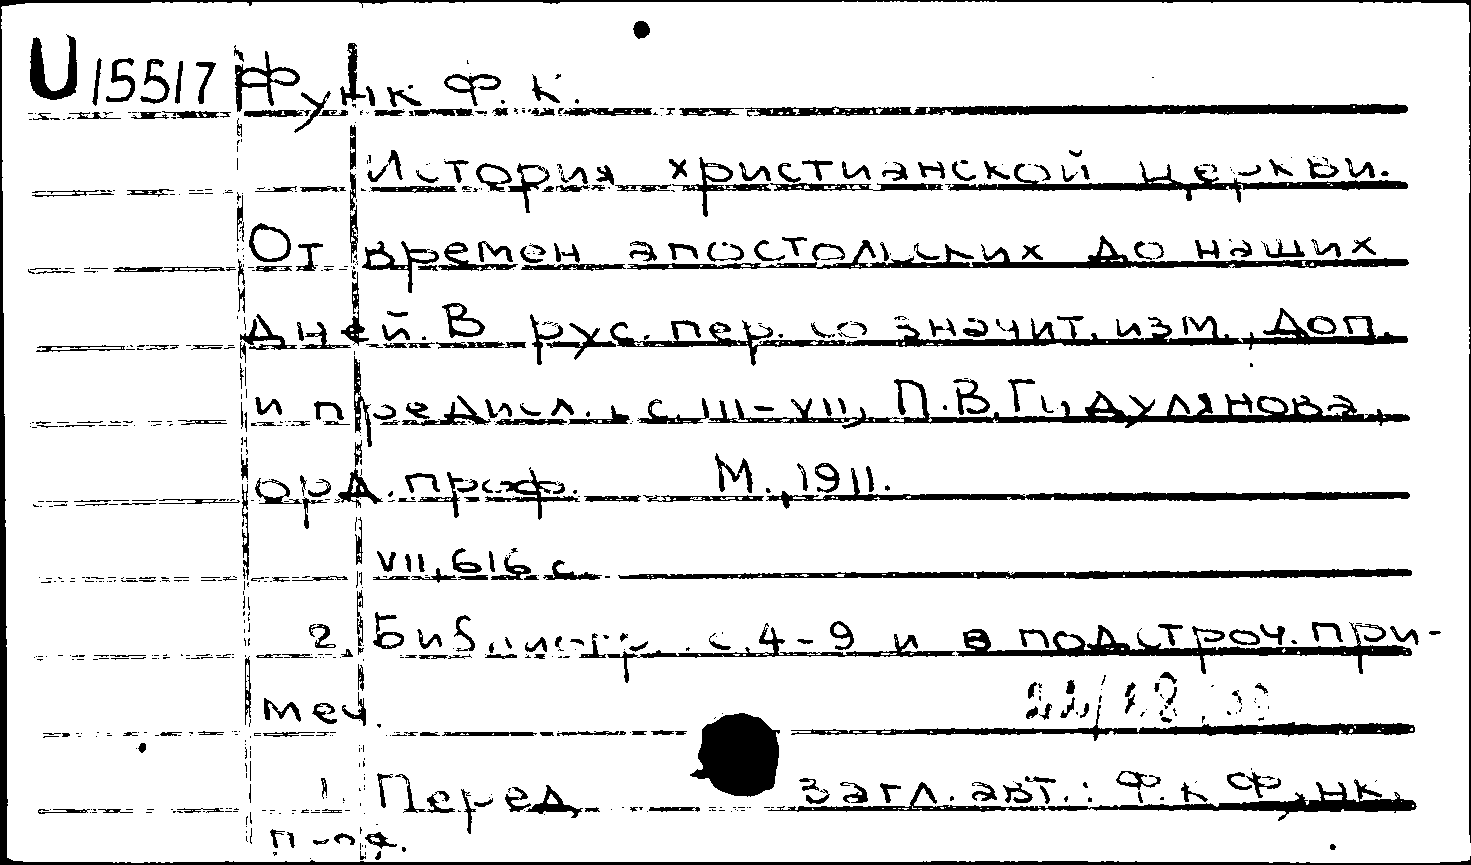 U 15517 Функ Ф. К.
История христианской церкви.
От времен апостольских до наших
дней. В рус. пер. со значит. изм., доп.
и предисл., с. III-VII, П.В. Гидулянова,
орд. проф. М., 1911.
VII, 616 с.
2. Библиогр. с. 4-9 и в подстроч. при-
меч.
1. Перед загл. авт.: Ф. К. Функ,